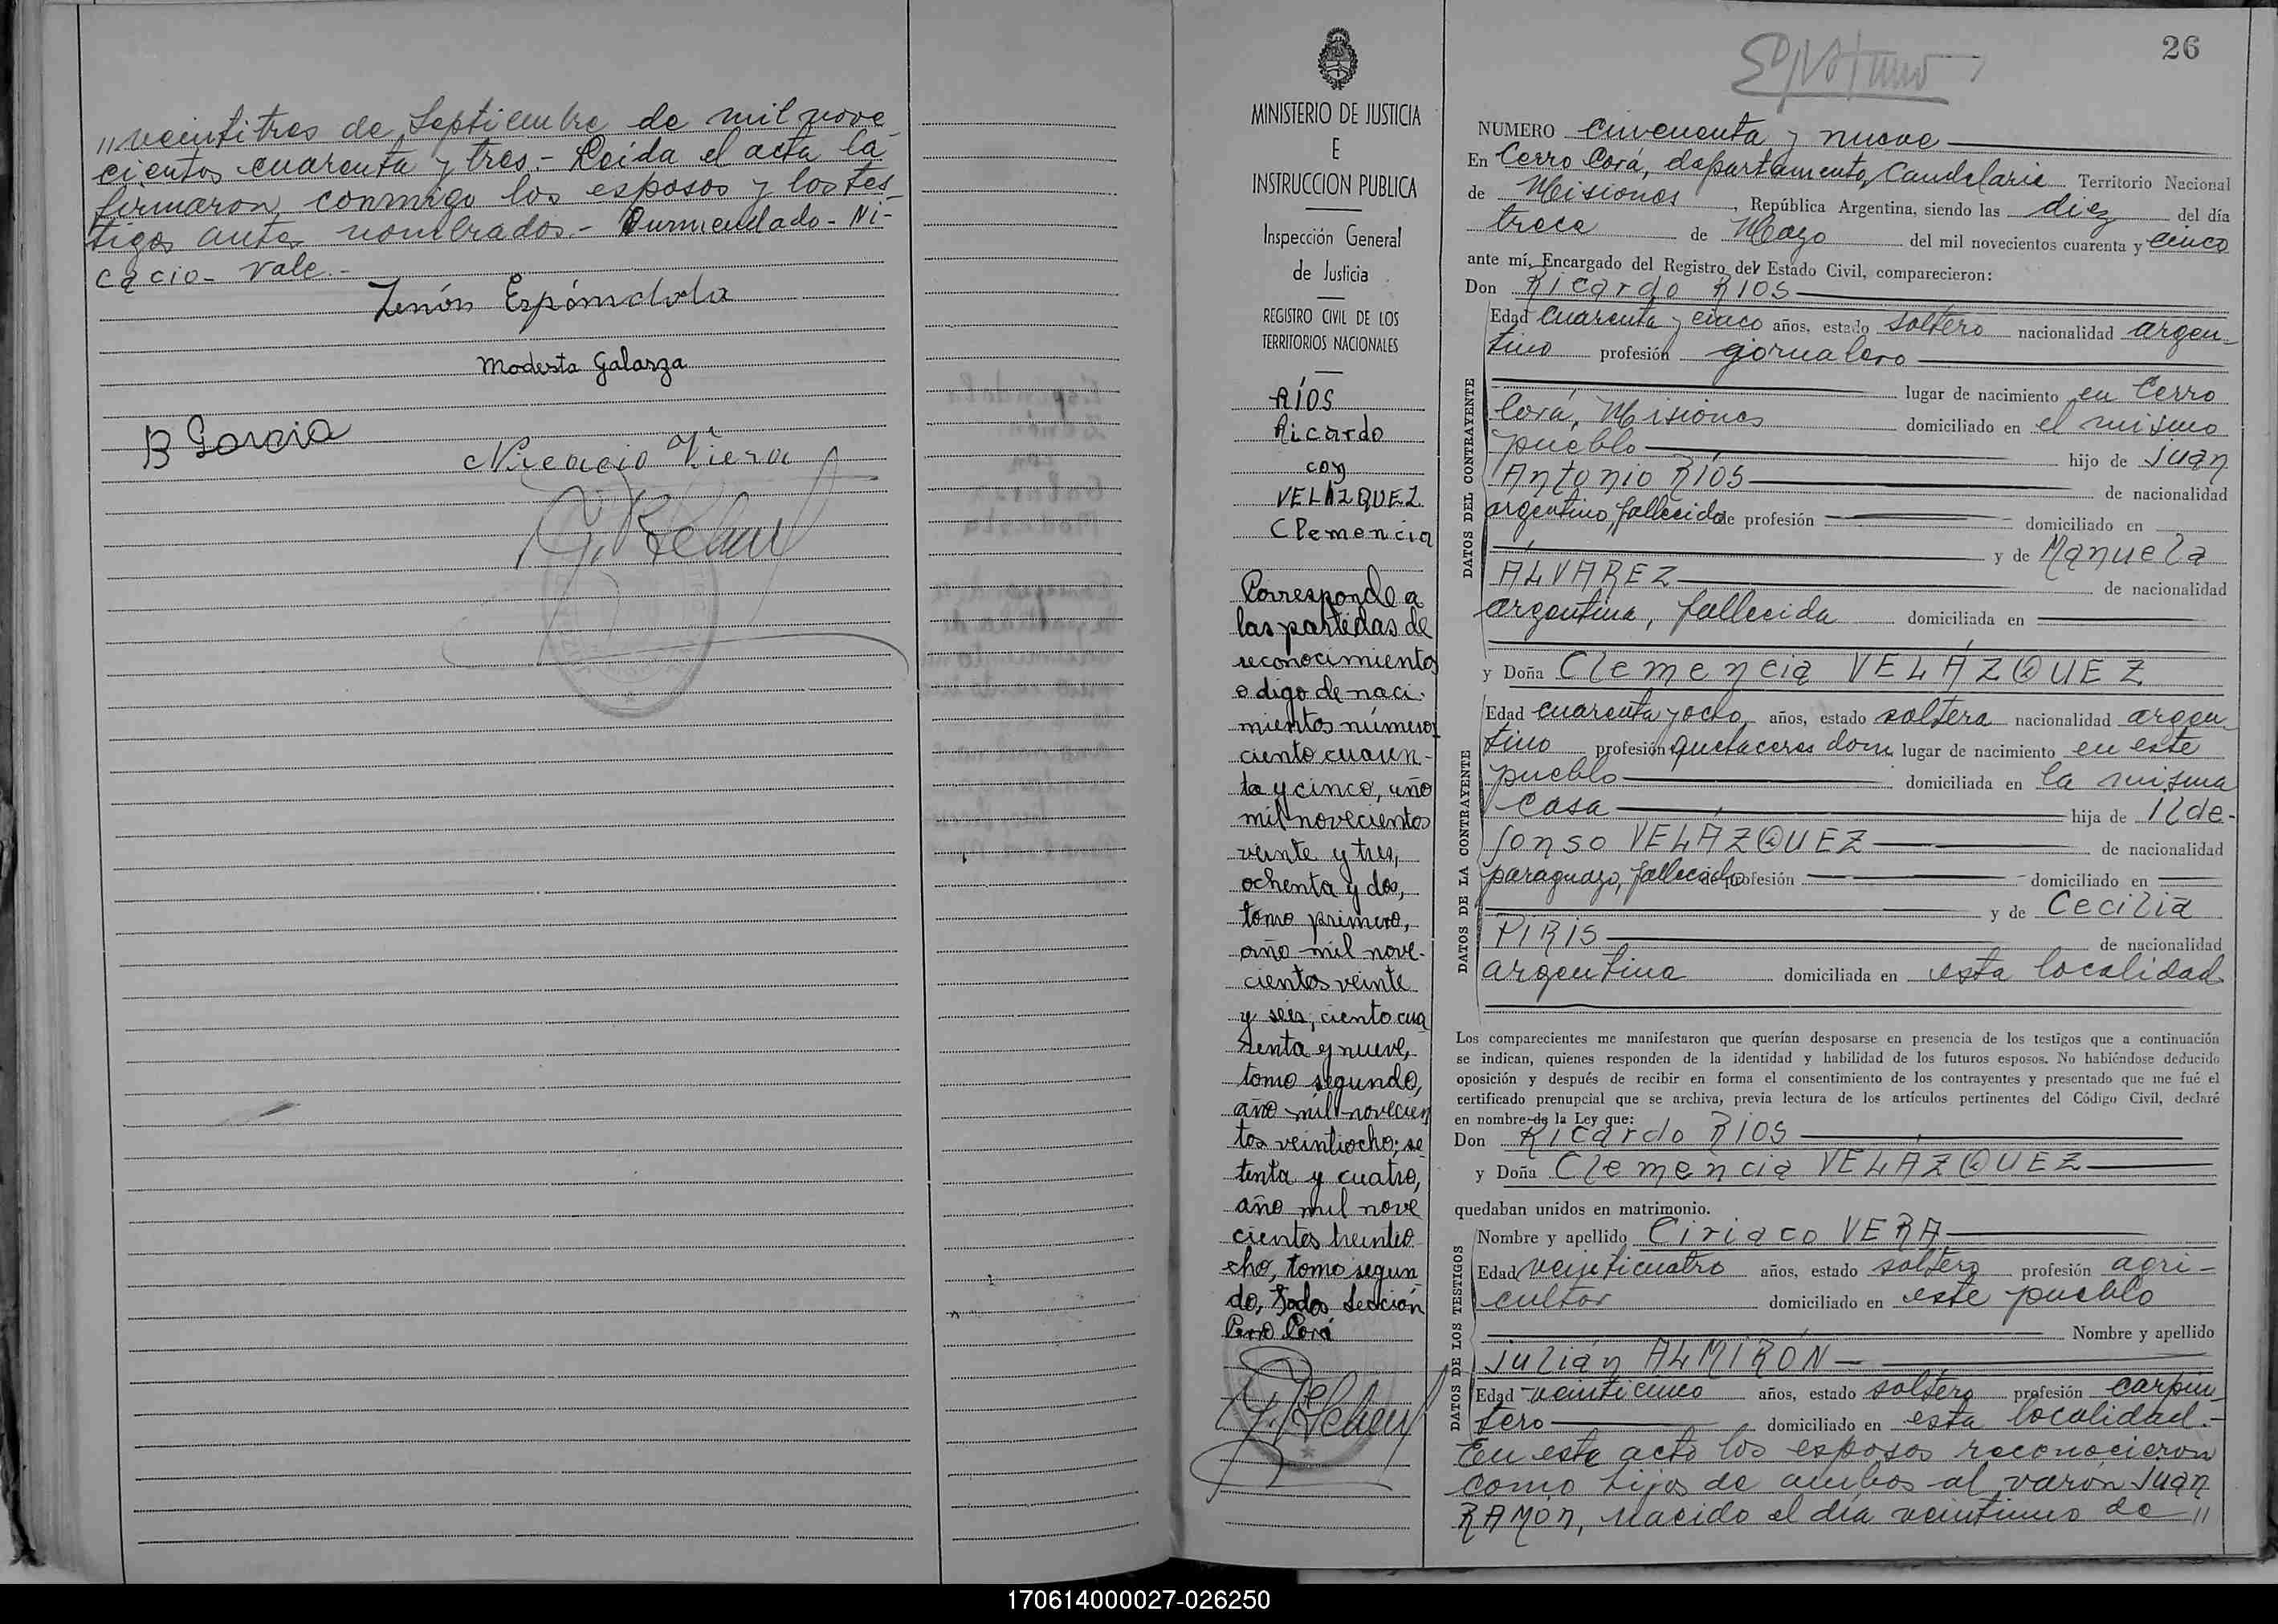 "veintitres de Septiembre de mil nove
cientos cuarenta y tres.- Leida el acta la
firmaron conmigo los esposos y los tes
tigos antes nombrados.- Enmendado - Ni-
cacio - Vale.-
Zenón Espíndola
Modesta Galarza
B Garcia
Nicacio Viera
26
MINISTERIO DE JUSTICIA
E
INSTRUCCION PUBLICA
Inspección General
de Justicia
REGISTRO CIVIL DE LOS
TERRITORIOS NACIONALES
RÍOS
Ricardo
con
VELAZQUEZ
Clemencia
Corresponde a
las partidas de
reconocimiento
o digo de naci-
mientos números
ciento cuaren-
ta y cinco, año
mil novecientos
veinte y tres,
ochenta y dos,
tomo primero,
año mil nove-
cientos veinte
y seis; ciento cua
renta y nueve,
tomo segundo,
año mil novecien
tos veintiocho; se
tenta y cuatro,
año mil nove
cientos treintio
cho, tomo segun
do, todos Sección
Cerro Corá
NUMERO cincuenta y nueve
En Cerro Corá, departamento Candelaria Territorio Nacional
de Misiones, República Argentina, siendo las diez del día
trece de Mayo del mil novecientos cuarenta y cinco
ante mí, Encargado del Registro del Estado Civil, comparecieron:
Don Ricardo RIOS
DATOS DEL CONTRAYENTE
Edad cuarenta y cinco años, estado soltero nacionalidad argen-
tino profesión jornalero
lugar de nacimiento en Cerro
Corá, Misiones domiciliado en el mismo
pueblo hijo de Juan
Antonio RÍOS de nacionalidad
argentino, fallecido de profesión domiciliado en
y de Manuela
ÁLVAREZ de nacionalidad
argentina, fallecida domiciliada en
y Doña Clemencia VELÁZQUEZ
DATOS DE LA CONTRAYENTE
Edad cuarenta y ocho años, estado soltera nacionalidad argen
tino profesión quehaceres dom. lugar de nacimiento en este
pueblo domiciliada en la misma
casa hija de Ilde-
fonso VELÁZQUEZ de nacionalidad
paraguayo, fallecido de profesión domiciliado en
y de Cecilia
PIRIS de nacionalidad
argentina domiciliada en esta localidad
Los comparecientes me manifestaron que querían desposarse en presencia de los testigos que a continuación
se indican, quienes responden de la identidad y habilidad de los futuros esposos. No habiéndose deducido
oposición y después de recibir en forma el consentimiento de los contrayentes y presentado que me fué el
certificado prenupcial que se archiva, previa lectura de los artículos pertinentes del Código Civil, declaré
en nombre de la Ley que:
Don Ricardo RÍOS
y Doña Clemencia VELÁZQUEZ
quedaban unidos en matrimonio.
DATOS DE LOS TESTIGOS
Nombre y apellido Ciriaco VERA
Edad veinticuatro años, estado soltero profesión agri-
cultor domiciliado en este pueblo
Nombre y apellido
Julián ALMIRÓN
Edad veinticinco años, estado soltero profesión carpin
tero domiciliado en esta localidad.-
En este acto los esposos reconocieron
como hijos de ambos al varón Juan
RAMÓN, nacido el día veintiuno de "
170614000027-026250